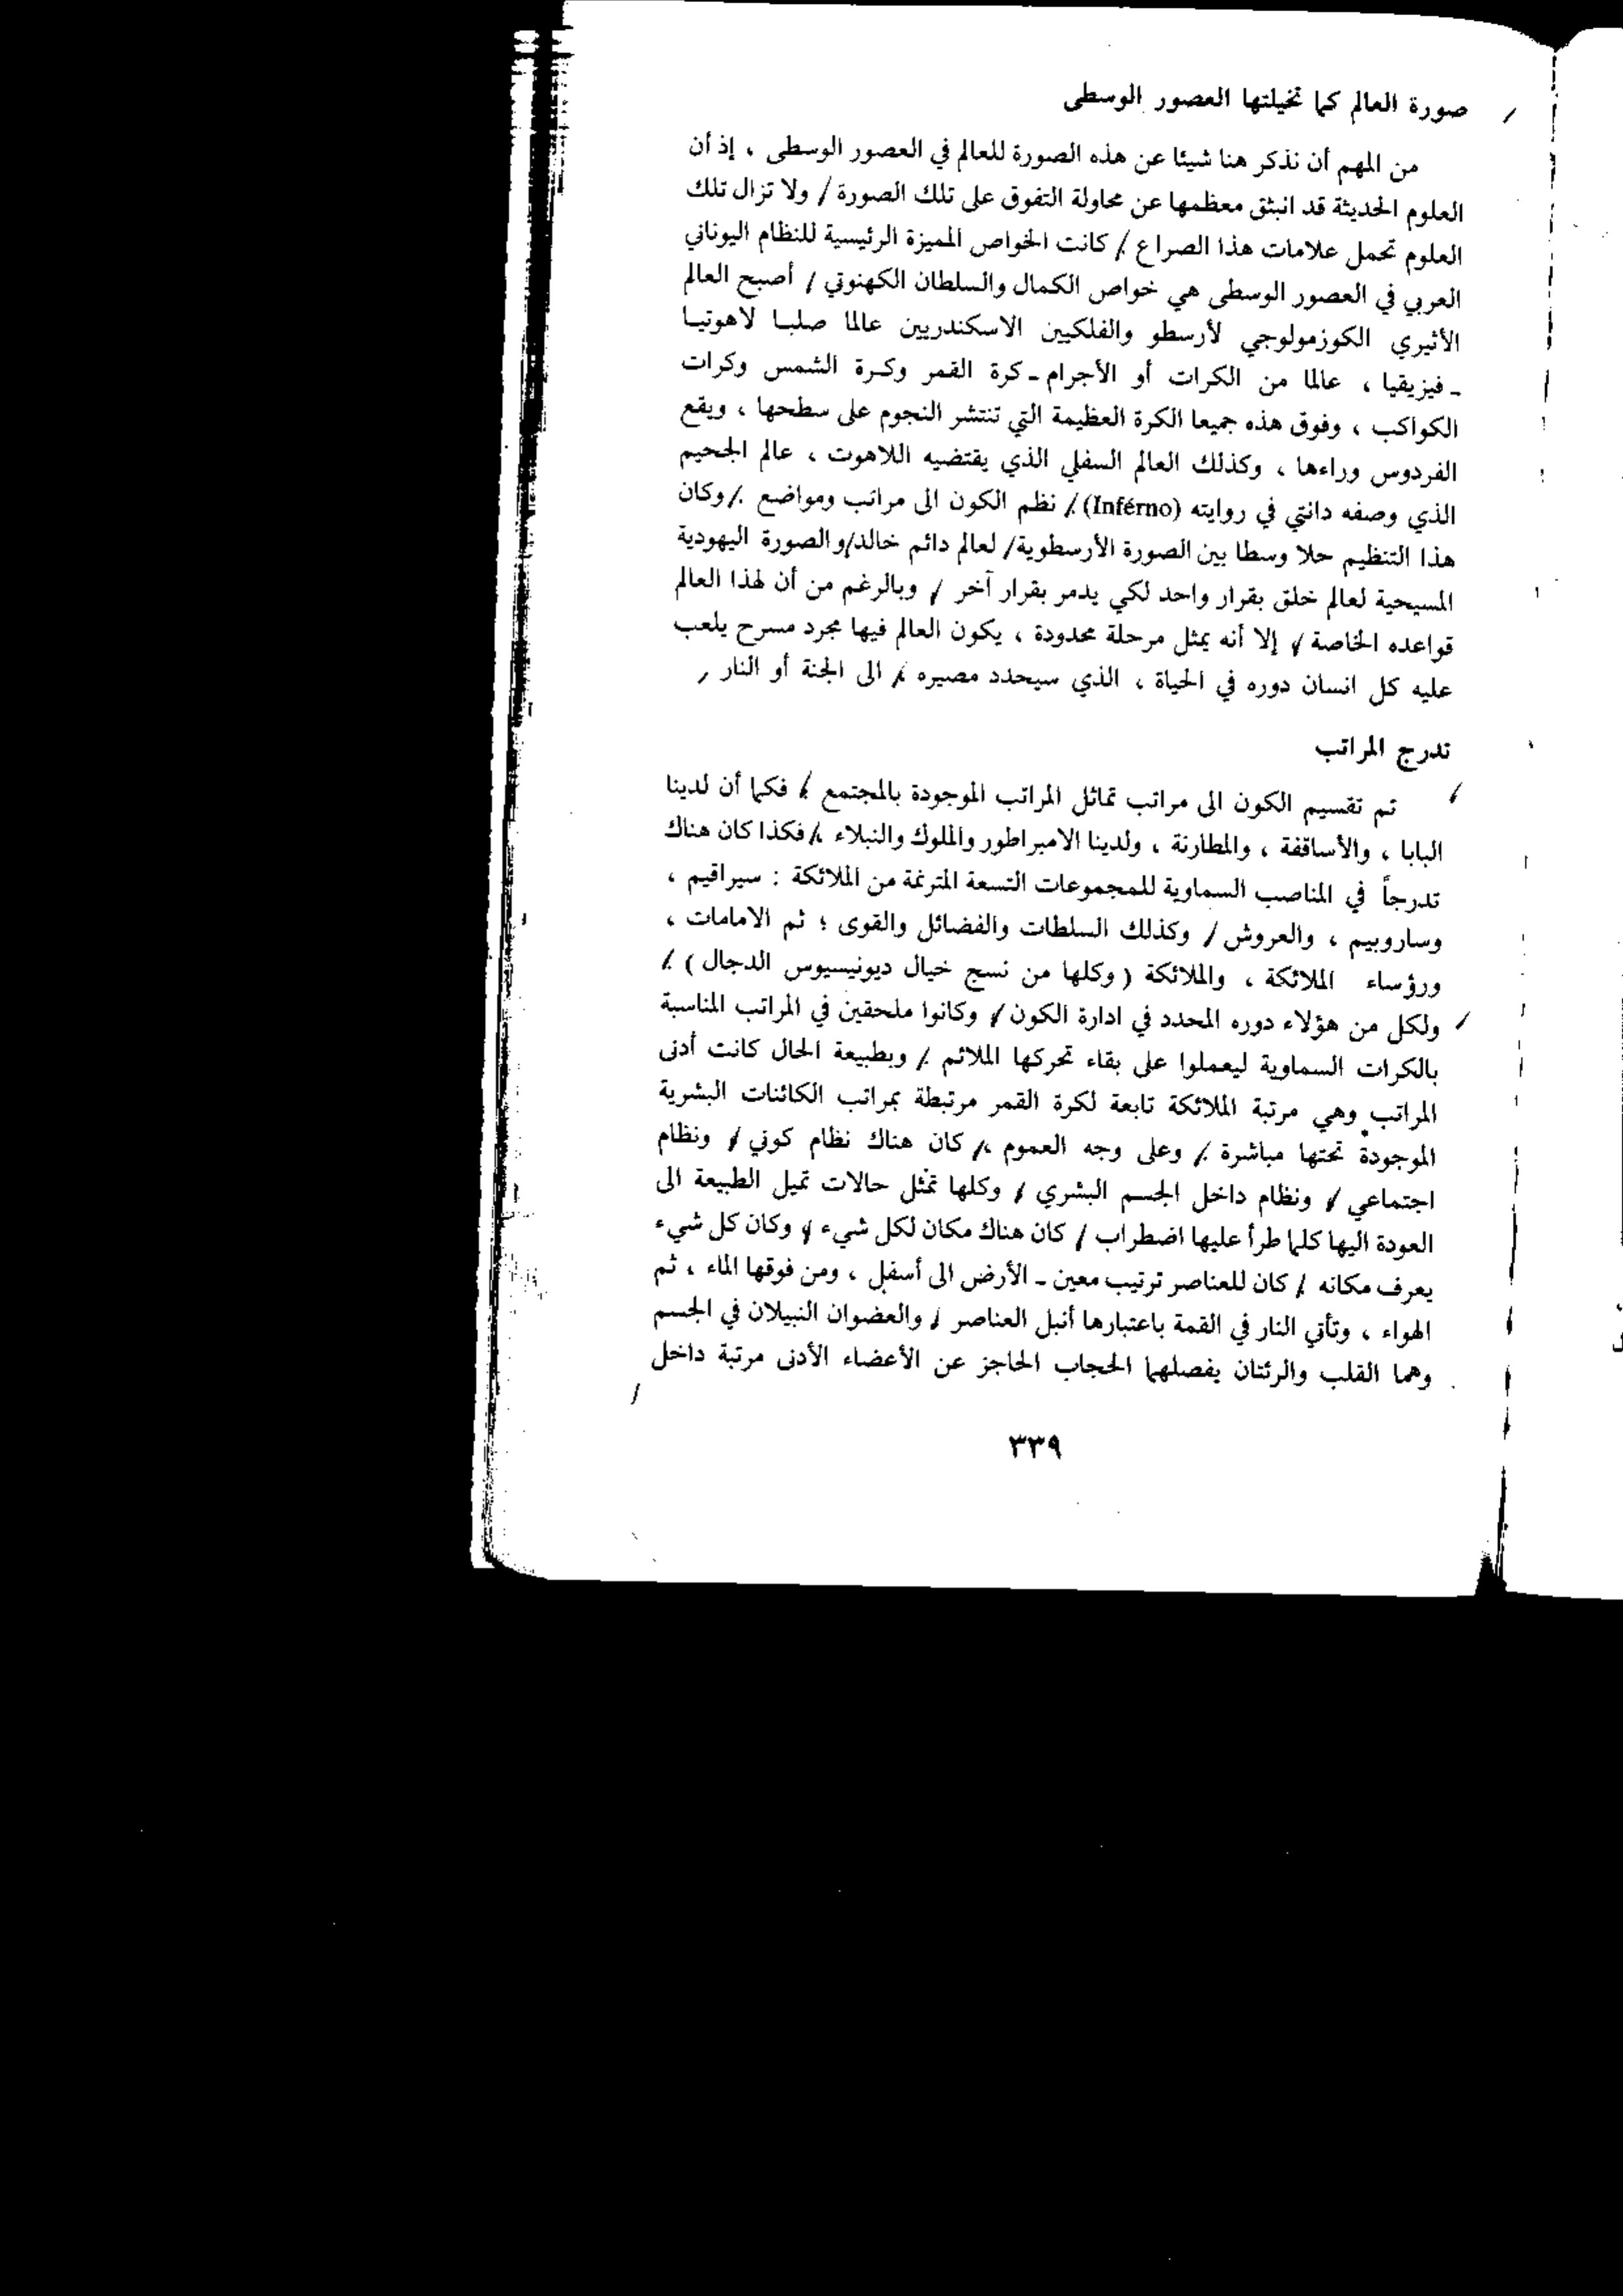 صورة العالم كما تخيلتها العصور الوسطى
من المهم أن نذكر هنا شيئا عن هذه الصورة للعالم في العصور الوسطى ، إذ أن
العلوم الحديثة قد انبثق معظمها عن محاولة التفوق على تلك الصورة / ولا تزال تلك
العلوم تحمل علامات هذا الصراع ./ كانت الخواص المميزة الرئيسية للنظام اليوناني
العربي في العصور الوسطى هي خواص الكمال والسلطان الكهنوتي / أصبح العالم
الأثيري الكوزمولوجي لأرسطو والفلكيين الاسكندريين عالما صلبا لاهوتيا
ـ فيزيقيا ، عالما من الكرات أو الأجرام ـ كرة القمر وكرة الشمس وكرات
الكواكب ، وفوق هذه جميعا الكرة العظيمة التي تنتشر النجوم على سطحها ، ويقع
الفردوس وراءها ، وكذلك العالم السفلي الذي يقتضيه اللاهوت ، عالم الجحيم
الذي وصفه دانتي في روايته (Inférno) ./ نظم الكون الى مراتب ومواضع ./ وكان
هذا التنظيم حلا وسطا بين الصورة الأرسطوية/ لعالم دائم خالد/ والصورة اليهودية
المسيحية لعالم خلق بقرار واحد لكي يدمر بقرار آخر / وبالرغم من أن لهذا العالم
قواعده الخاصة / إلا أنه يمثل مرحلة محدودة ، يكون العالم فيها مجرد مسرح يلعب
عليه كل انسان دوره في الحياة ، الذي سيحدد مصيره / الى الجنة أو النار /
تدرج المراتب
تم تقسيم الكون الى مراتب تماثل المراتب الموجودة بالمجتمع / فكما أن لدينا
البابا ، والأساقفة ، والمطارنة ، ولدينا الامبراطور والملوك والنبلاء / فكذا كان هناك
تدرجاً في المناصب السماوية للمجموعات التسعة المترنمة من الملائكة : سيراقيم ،
وساروبيم ، والعروش / وكذلك السلطات والفضائل والقوى ؛ ثم الامامات ،
ورؤساء الملائكة ، والملائكة ( وكلها من نسج خيال ديونيسيوس الدجال ) ./
ولكل من هؤلاء دوره المحدد في ادارة الكون / وكانوا ملحقين في المراتب المناسبة
بالكرات السماوية ليعملوا على بقاء تحركها الملائم ./ وبطبيعة الحال كانت أدنى
المراتب وهي مرتبة الملائكة تابعة لكرة القمر مرتبطة بمراتب الكائنات البشرية
الموجودة تحتها مباشرة ./ وعلى وجه العموم / كان هناك نظام كوني / ونظام
اجتماعي / ونظام داخل الجسم البشري / وكلها تمثل حالات تميل الطبيعة الى
العودة اليها كلما طرأ عليها اضطراب / كان هناك مكان لكل شيء / وكان كل شيء
يعرف مكانه / كان للعناصر ترتيب معين ـ الأرض الى أسفل ، ومن فوقها الماء ، ثم
الهواء ، وتأتي النار في القمة باعتبارها أنبل العناصر / والعضوان النبيلان في الجسم
وهما القلب والرئتان يفصلهما الحجاب الحاجز عن الأعضاء الأدنى مرتبة داخل
٣٣٩